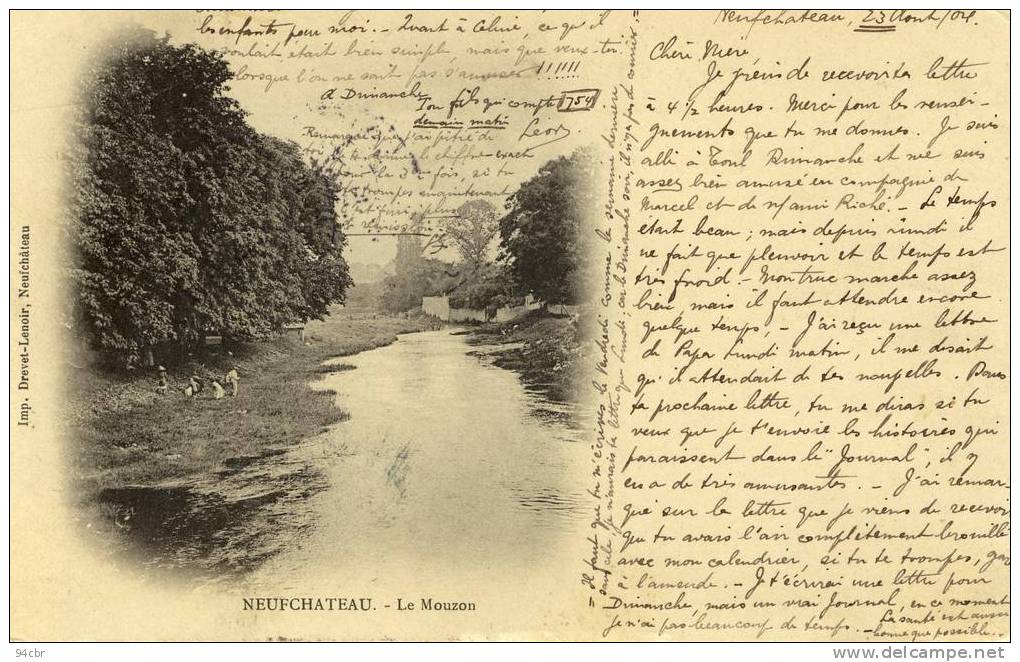 Neufchateau, 23 Août/04.
Chère Mère
Je viens de recevoir ta lettre
à 4 1/2 heures. Merci pour les rensei-
gnements que tu me donnes. Je suis
allé à Toul Dimanche et me suis
assez bien amusé en compagnie de
Marcel et de Riché. - Le temps
était beau; mais depuis lundi il
ne fait que pleuvoir et le temps est
très froid. - Mon truc marche assez
bien, mais il faut attendre encore
quelque temps. - J'ai reçu une lettre
de Papa Lundi matin, il me disait
qu'il attendait de tes nouvelles. Dans
ta prochaine lettre, tu me diras si tu
veux que je t'envoie les histoires qui
paraissent dans le "Journal", il y
en a de très amusantes. - J'ai remar-
qué sur la lettre que je viens de recevoir
que tu avais l'air complètement brouillé
avec mon calendrier, si tu te trompes, gare
à l'amende. - Je t'écrirai une lettre pour
Dimanche, mais un vrai Journal, en ce moment
je n'ai pas beaucoup de temps. - La santé est aussi
bonne que possible..
= Il faut que tu m'écrives le Vendredi comme la semaine dernière
sans cela, je n'aurais ta lettre que Lundi, car le Dimanche soir, il n'y a pas de courrier. =
les enfants pour moi. - Quant à Celine, ce qu'il
voulait était bien simple, mais que veux-tu
lorsque l'on ne sait pas s'amuser !!!!!!
A Dimanche
Ton fils qui compte 754
demain matin
Leon.
Remarque que j'ai pitié de
toi le chiffre exact
pour la 3e fois, si tu
te trompes maintenant
plus
NEUFCHATEAU. - Le Mouzon
Imp. Drevet-Lenoir, Neufchâteau
94cbr
www.delcampe.net